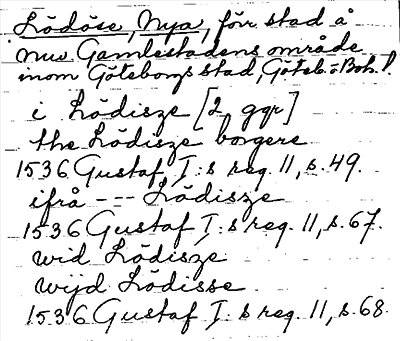 Lödöse, Nya, förr stad å
nuv. Gamlestadens område
inom Göteborgs stad, Göteb. o. Boh. l.
i Lödisze [2 ggr]
the Lödisze borgere
1536 Gustaf I:s reg. 11, s. 49.
ifrå --- Lödisze
1536 Gustaf I:s reg. 11, s. 67.
wid Lödisze
wijd Lödisse
1536 Gustaf I:s reg. 11, s. 68.